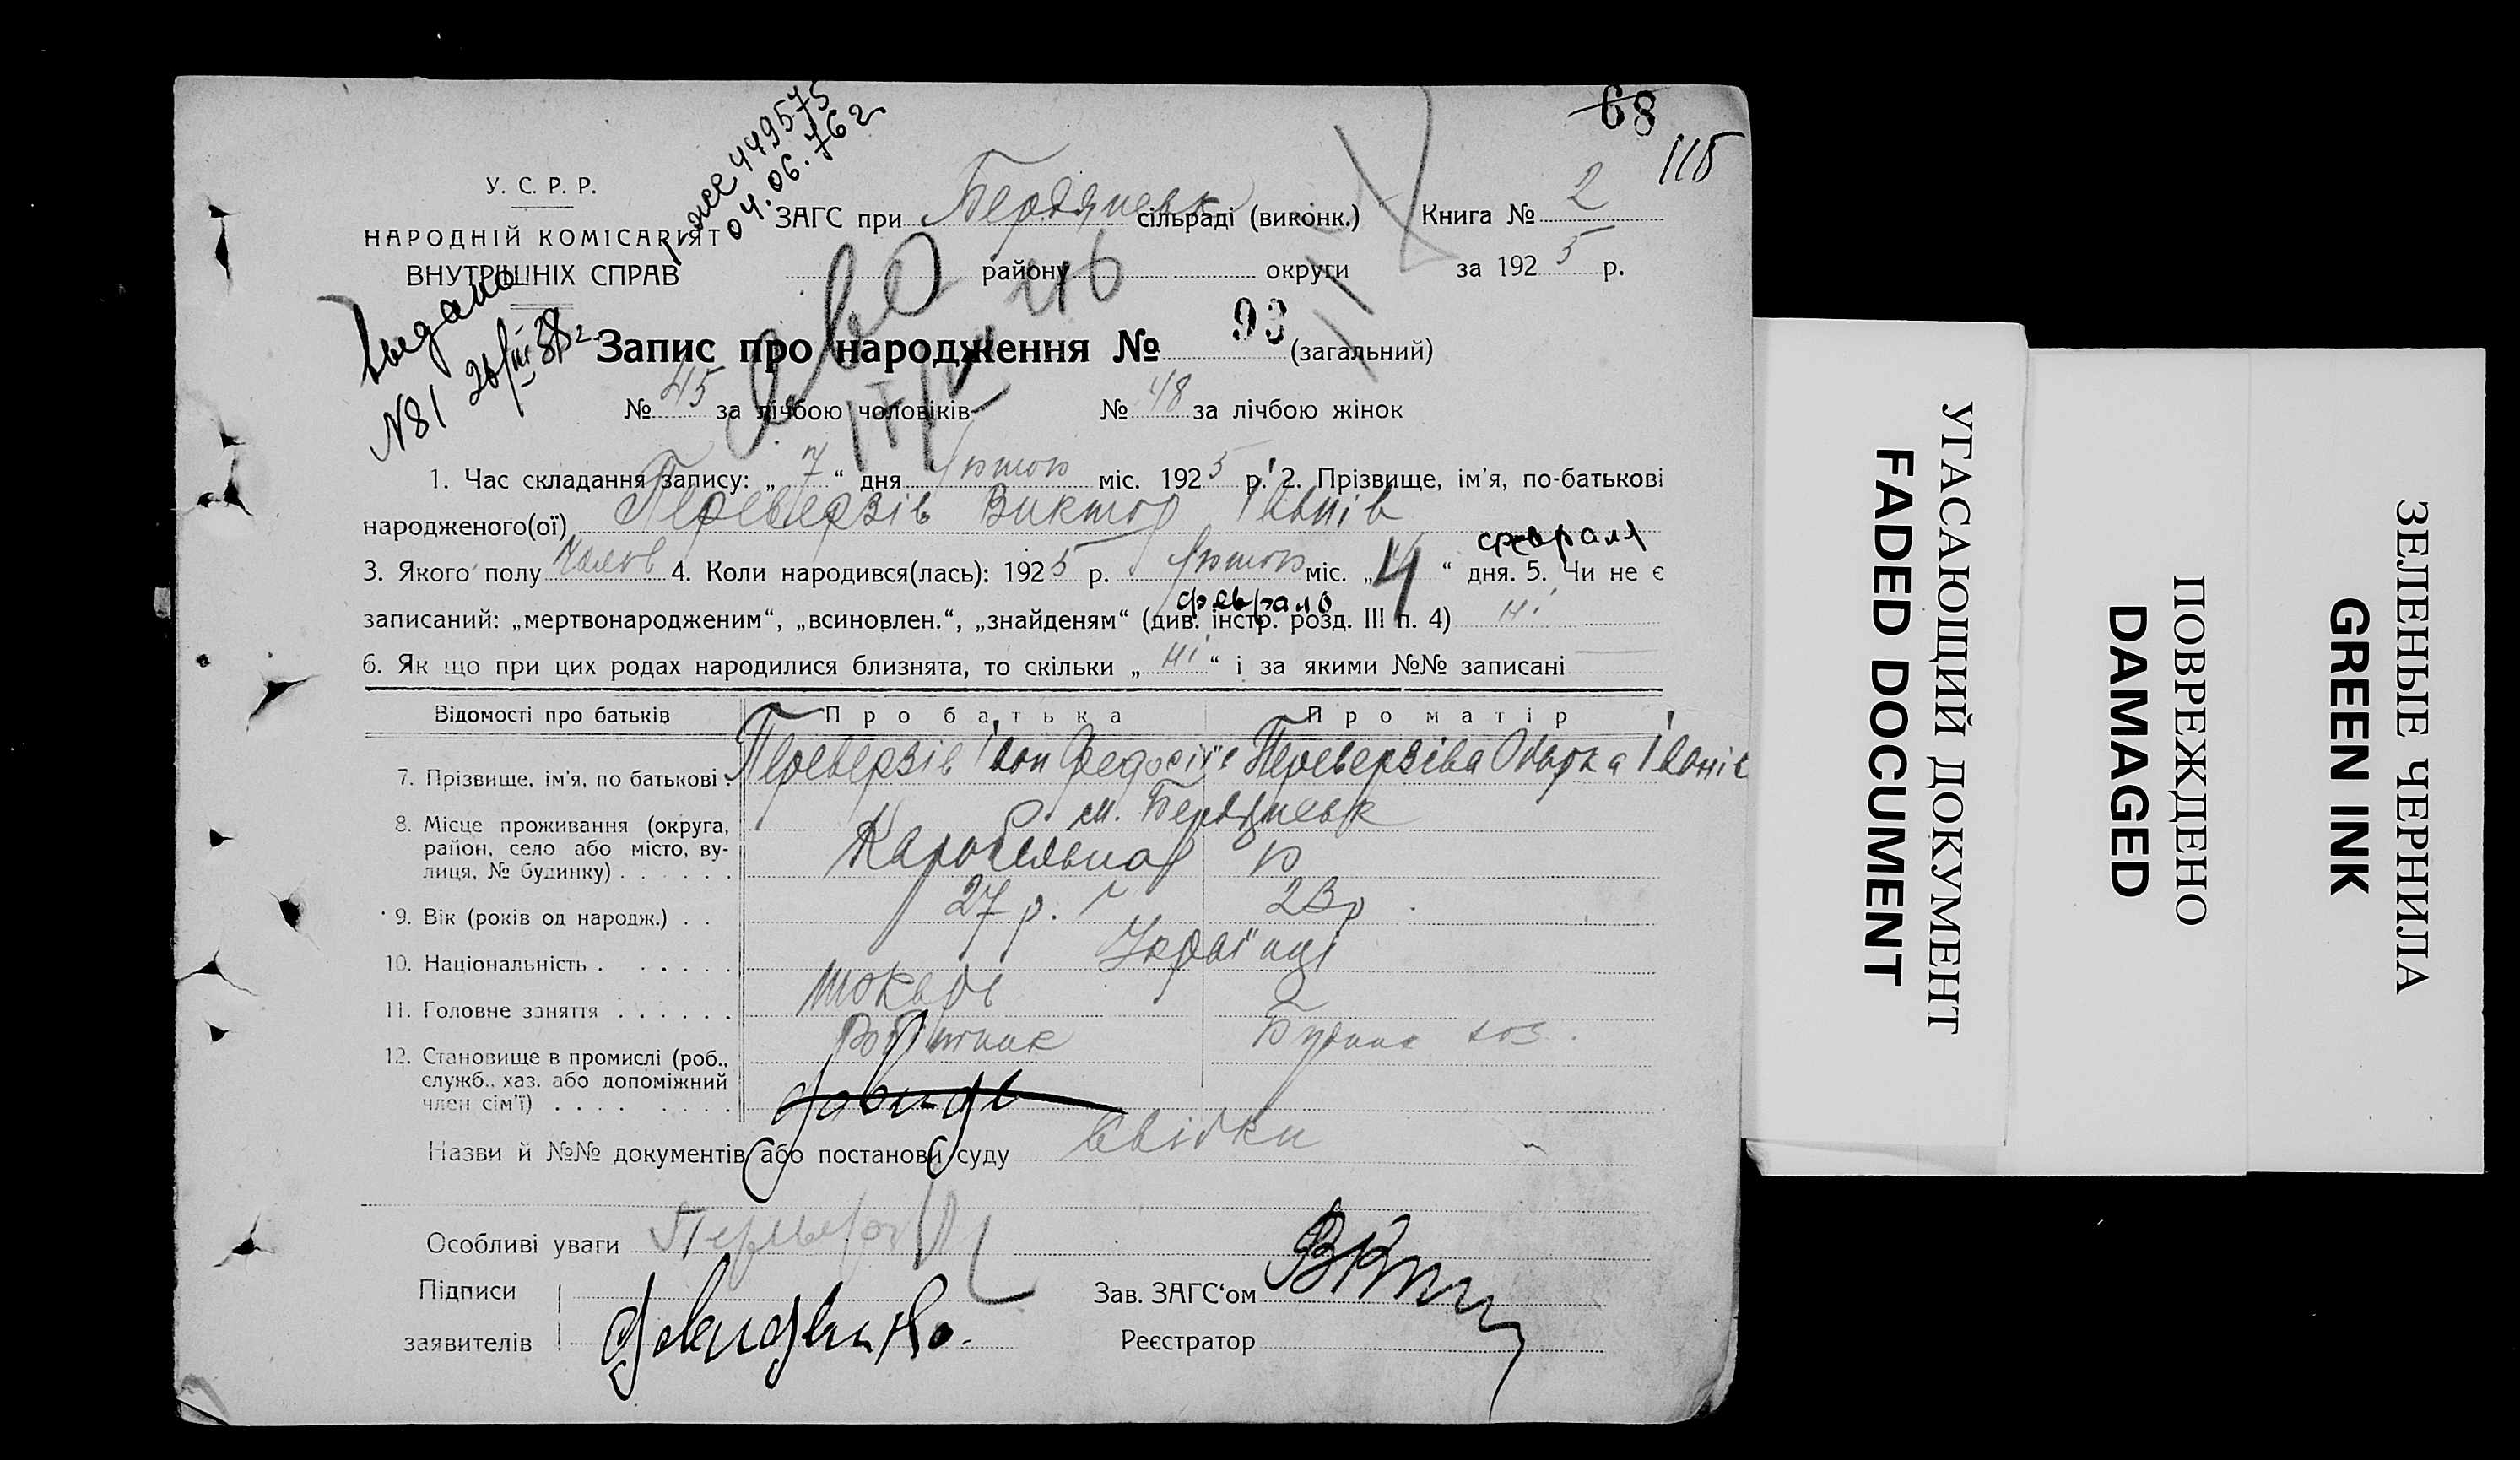 68
115
У. С. Р. Р.
НАРОДНІЙ КОМІСАРІЯТ
ВНУТРІШНІХ СПРАВ
449575
04.06.76 г
ЗАГС при Бердянськ сільраді (виконк.) Книга № 2
району округи за 1925 р.
46
Видано
N81 26/III 38 г.
Запис про народження № 93 (загальний)
№ 45 за лічбою чоловіків № 48 за лічбою жінок
1. Час складання запису: „ 7 “ дня Лютого міс. 1925 р. 2. Прізвище, ім’я, по-батькові
народженого(ої) Переверзів Виктор Іванів
февраля
3. Якого полу 4. Коли народився(лась): 1925 р. Лютого міс. „ 4 “ дня. 5. Чи не є
февраля
записаний: „мертвонародженим“, „всиновлен.“, „знайденям“ (див. інстр. розд. III п. 4) ні
6. Як що при цих родах народилися близнята, то скільки „ ні “ і за якими №№ записані
Відомості про батьків Про батька Про матір
7. Прізвище, ім’я, по батькові : Переверзів Іван Переверзіва Одарка Іванів
8. Місце проживання (округа, район, село або місто, вулиця, № будинку) м. Бердянськ
9. Вік (років од народж.) 27 р. 23 р
10. Національність Українці
11. Головне заняття токарь
12. Становище в промислі (роб., служб., хаз. або допоміжний член сім’ї) Робітник
Назви й №№ документів або постанови суду Свідки
Особливі уваги
Підписи
заявителів
Зав. ЗАГС‘ом
Реєстратор
УГАСАЮЩИЙ ДОКУМЕНТ
FADED DOCUMENT
ПОВРЕЖДЕНО
DAMAGED
ЗЕЛЕНЫЕ ЧЕРНИЛА
GREEN INK